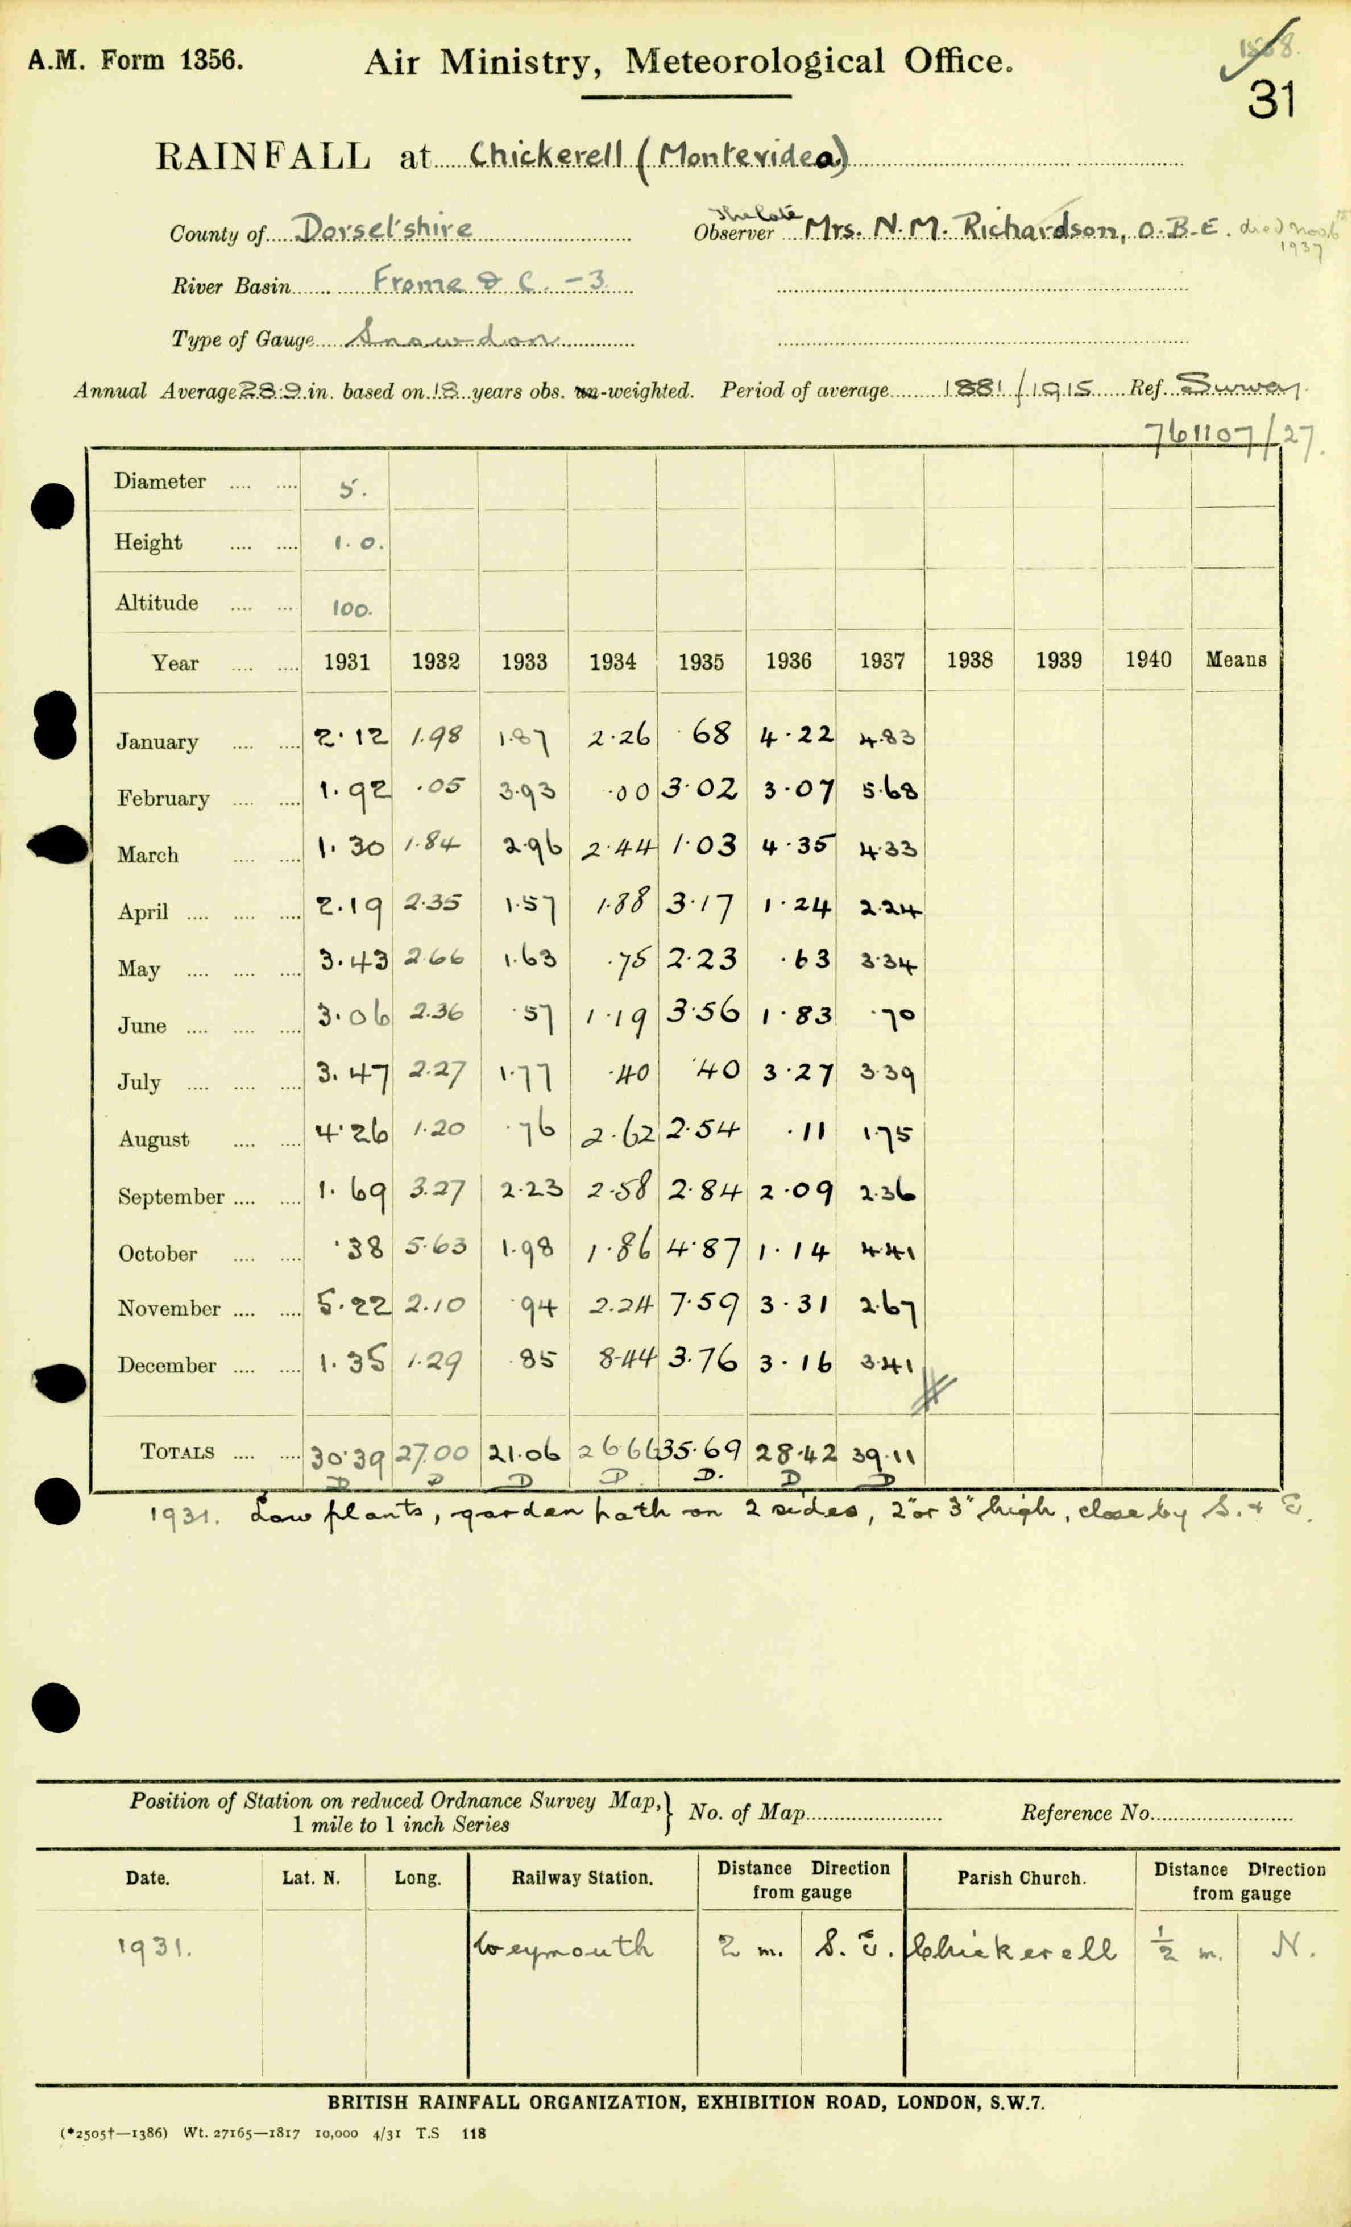 1568.
A.M. Form 1356. Air Ministry, Meteorological Office.
31
RAINFALL at Chickerell (Montevideo)
County of Dorset'shire The late Observer Mrs. N. M. Richardson, O.B.E. died Nov 6th 1937
River Basin Frome & C. - 3.
Type of Gauge Snowdon
Annual Average 28.9 in. based on 18 years obs. un-weighted. Period of average 1881/1915 Ref. Survey.
761107/27.
Diameter .... .... 5.
Height .... .... 1. 0.
Altitude .... .... 100.
Year .... .... 1931 1932 1933 1934 1935 1936 1937 1938 1939 1940 Means
January .... .... 2.12 1.98 1.87 2.26 .68 4.22 4.83
February .... .... 1.92 .05 3.93 .00 3.02 3.07 5.68
March .... .... 1.30 1.84 2.96 2.44 1.03 4.35 4.33
April .... .... .... 2.19 2.35 1.57 1.88 3.17 1.24 2.24
May .... .... .... 3.43 2.66 1.63 .75 2.23 .63 3.34
June .... .... .... 3.06 2.36 .57 1.19 3.56 1.83 .70
July .... .... .... 3.47 2.27 1.77 .40 .40 3.27 3.39
August .... .... 4.26 1.20 .76 2.62 2.54 .11 1.75
September .... .... 1.69 3.27 2.23 2.58 2.84 2.09 2.36
October .... .... .38 5.63 1.98 1.86 4.87 1.14 4.41
November .... .... 5.22 2.10 .94 2.24 7.59 3.31 2.67
December .... .... 1.35 1.29 .85 8.44 3.76 3.16 3.41
TOTALS .... .... 30.39 27.00 21.06 26.66 35.69 28.42 39.11
D D D D D. D D
1931. Low plants, garden path on 2 sides, 2" or 3" high, close by S. & E.
Position of Station on reduced Ordnance Survey Map,} No. of Map Reference No.
1 mile to 1 inch Series
Date. Lat. N. Long. Railway Station. Distance Direction from gauge Parish Church. Distance Direction from gauge
1931. Weymouth 2 m. S. E. Chickerell ½ m. N.
BRITISH RAINFALL ORGANIZATION, EXHIBITION ROAD, LONDON, S.W.7.
(*2505†—1386) Wt. 27165—1817 10,000 4/31 T.S 118